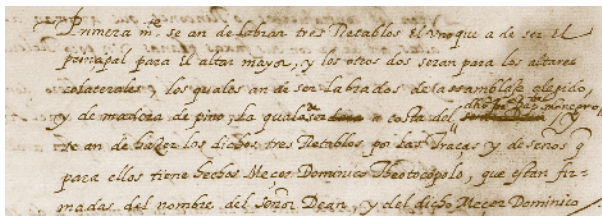 Primera mte. se an de labrar tres Retablos El vno que a de ser El
principal para El altar mayor, y los otros dos seran para los altares
colaterales los quales an de ser labrados de assamblaje
y de madera de pino, la qual a costa del
se an de hazer los dichos tres Retablos por las Traças y deseños q̃
para ellos tiene hechos Mecer Dominico Theotocopolo, que estan fir=
madas del nombre del señor Dean, y del dicho Mecer Dominico